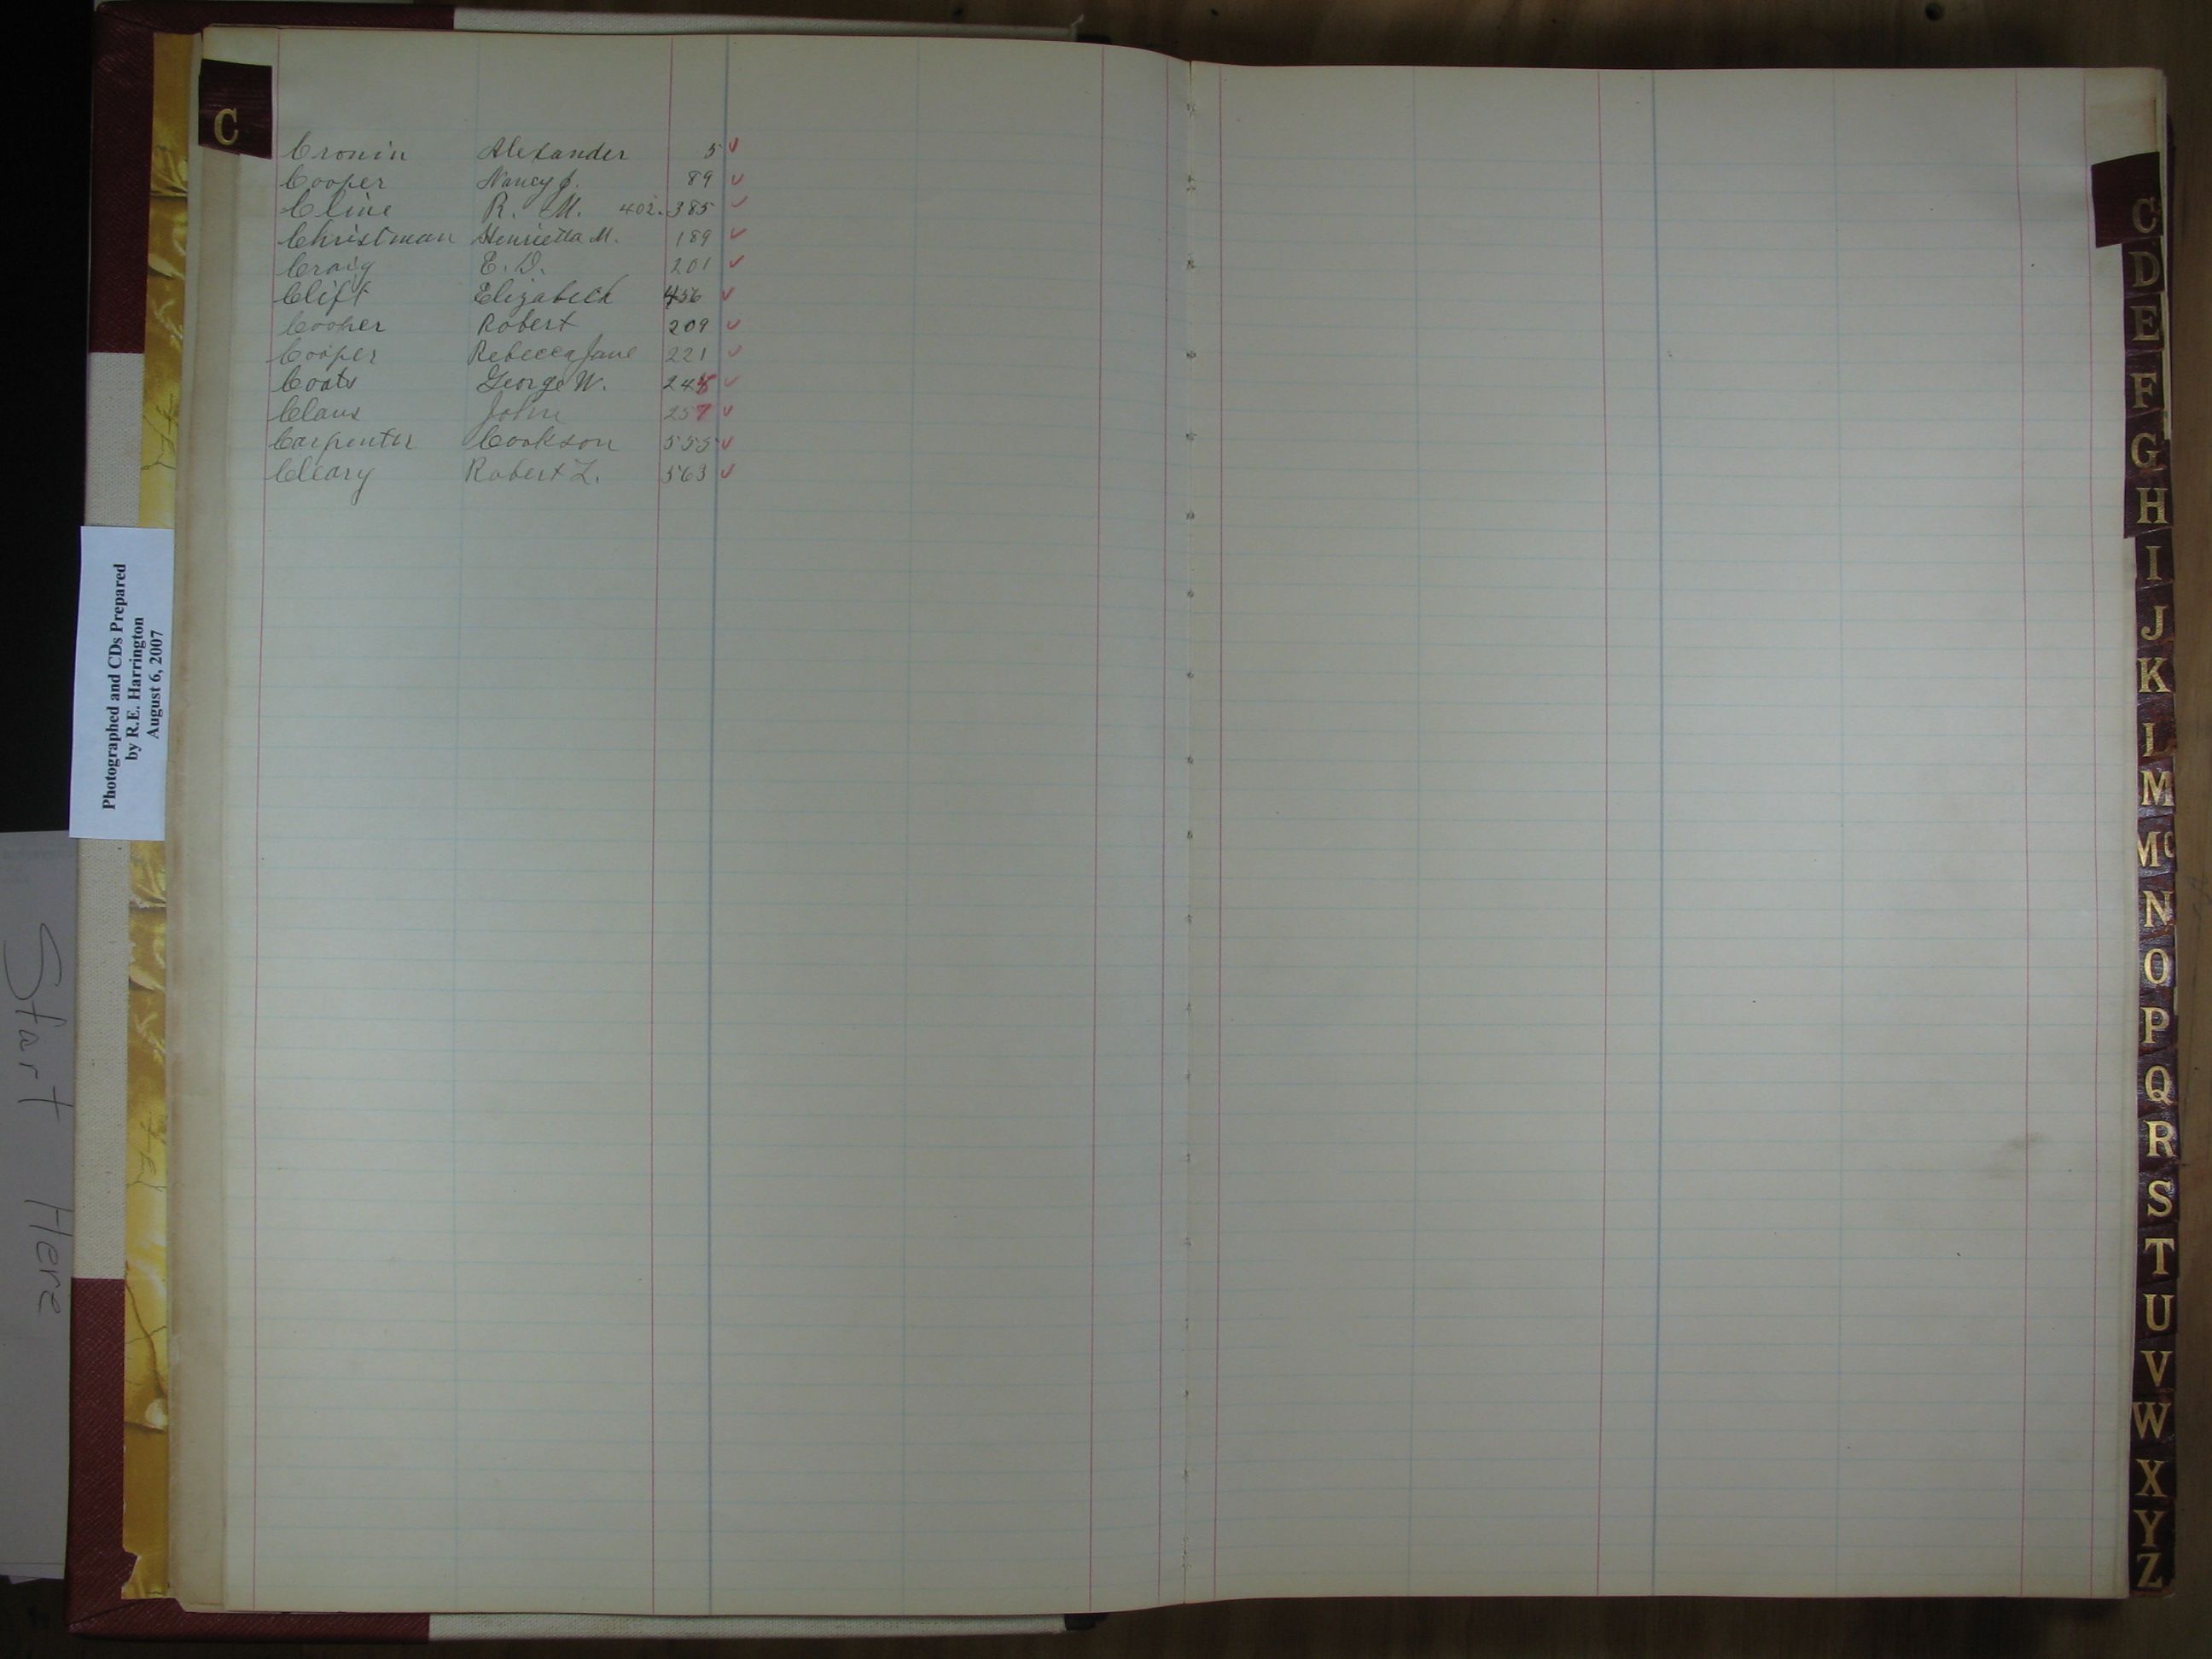 C
Cronin Alexander 5 ✓
Cooper Nancy J. 89 ✓
Cline R. M. 402. 385 ✓
Christman Henrietta M. 189 ✓
Craig E. D. 201 ✓
Clift Elizabeth 456 ✓
Cooper Robert 209 ✓
Cooper Rebecca Jane 221 ✓
Coats George W. ✓
Claus John 257 ✓
Carpenter Cookson 555 ✓
Cleary Robert L. 563 ✓
Photographed and CDs Prepared
by R.E. Harrington
August 6, 2007
Start Here
C
D
E
F
G
H
I
J
K
L
M
Mc
N
O
P
Q
R
S
T
U
V
W
X
Y
Z